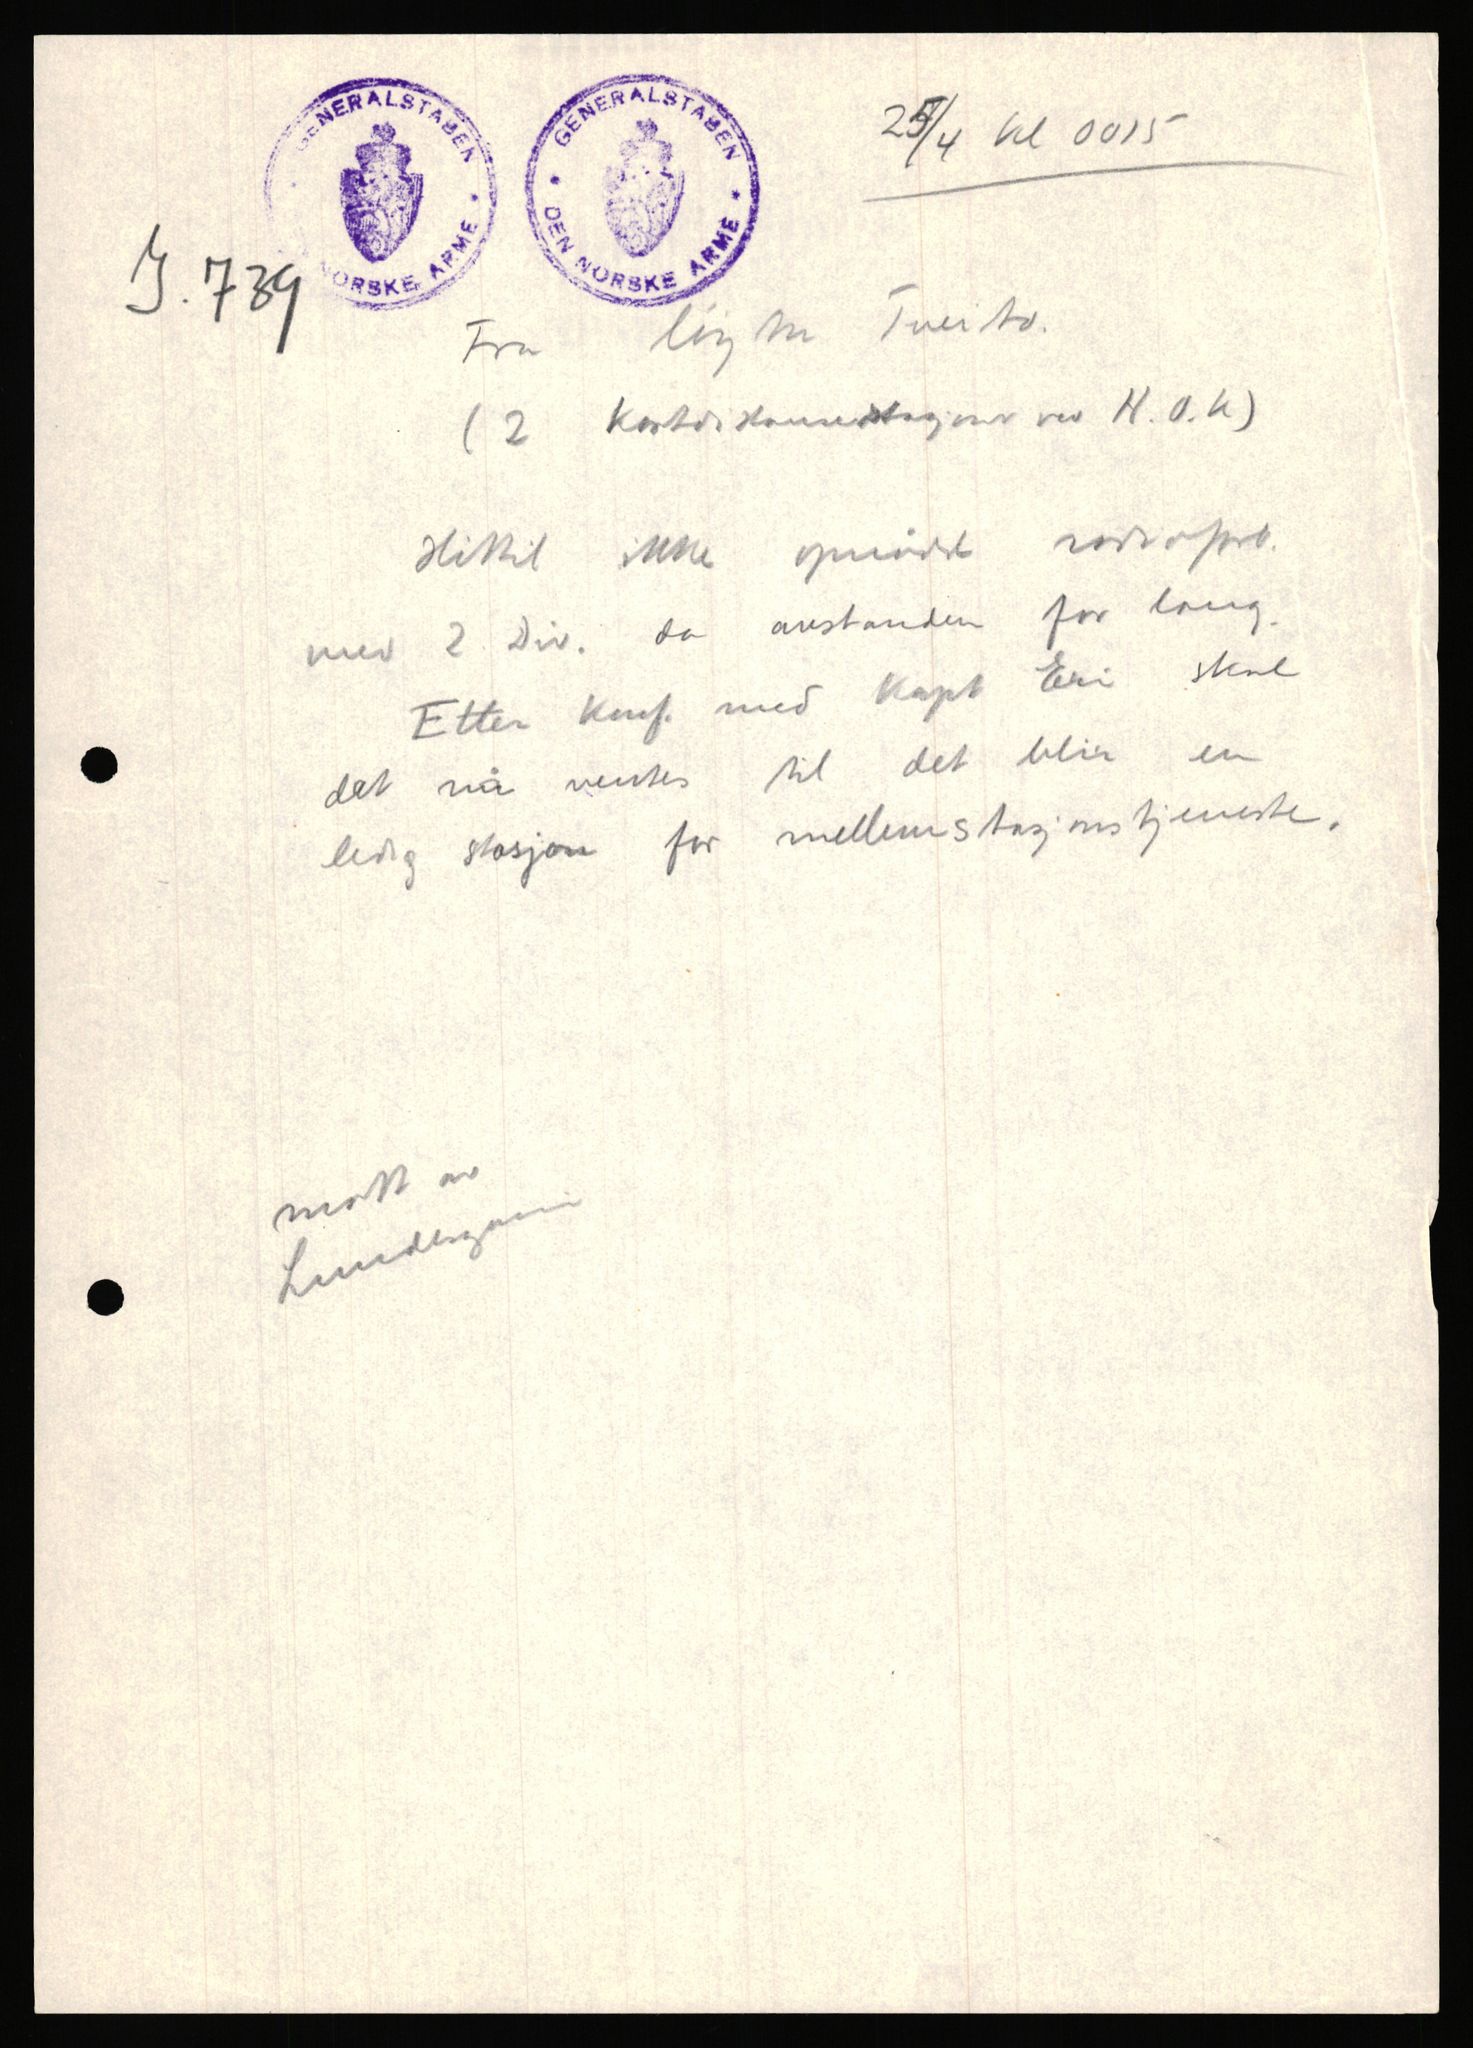 GENERALSTABEN
NORSKE ARME
GENERALSTABEN
DEN NORSKE ARME
25/4 kl 0015
J. 739
Fra løytn Tveito.
(2 Kortdistansestasjoner ved H.O.K)
Hittil ikke opnådd radioforb.
med 2 Div. da avstanden for lang.
Etter konf. med Kapt Eri skal
det nå ventes til det blir en
ledig stasjon for mellemstasjonstjeneste.
mott av